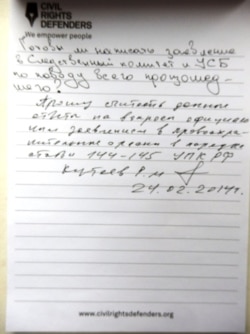 CIVIL
RIGHTS
DEFENDERS
We empower people
Готовы ли написать заявление
в Следственный комитет и УСБ
по поводу всего произошед-
шего?
Прошу считать данные
ответы на вопросы официаль
ным заявлением в правоохра
нительные органы в порядке
статьи 144-145 УПК РФ
Кутаев Р.М
24.02.2014г.
www.civilrightsdefenders.org